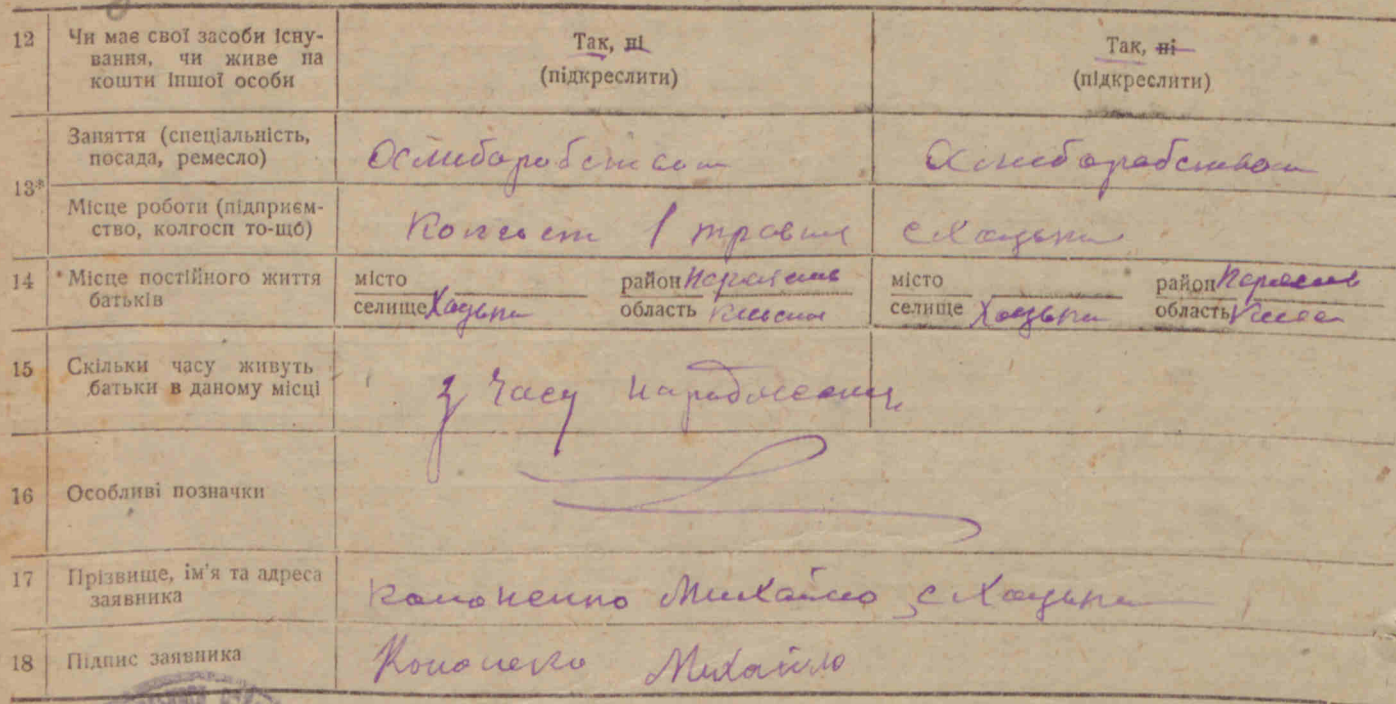 12 Чи має свої засоби існу-
вання, чи живе на
кошти іншої особи
Так, ні
(підкреслити)
Так, ні
(підкреслити)
13*
Заняття (спеціальність,
посада, ремесло)
Місце роботи (підприєм-
ство, колгосп то-що)
1 травня
14 Місце постійного життя
батьків
місто
селище Хоцьки
район
область
місто
селище Хоцьки
район
область
15 Скільки часу живуть
батьки в даному місці
з часу народження
16 Особливі позначки
17 Прізвище, ім'я та адреса
заявника
Кононенко Михайло с Хоцьки
18 Підпис заявника
Кононеко Михайло